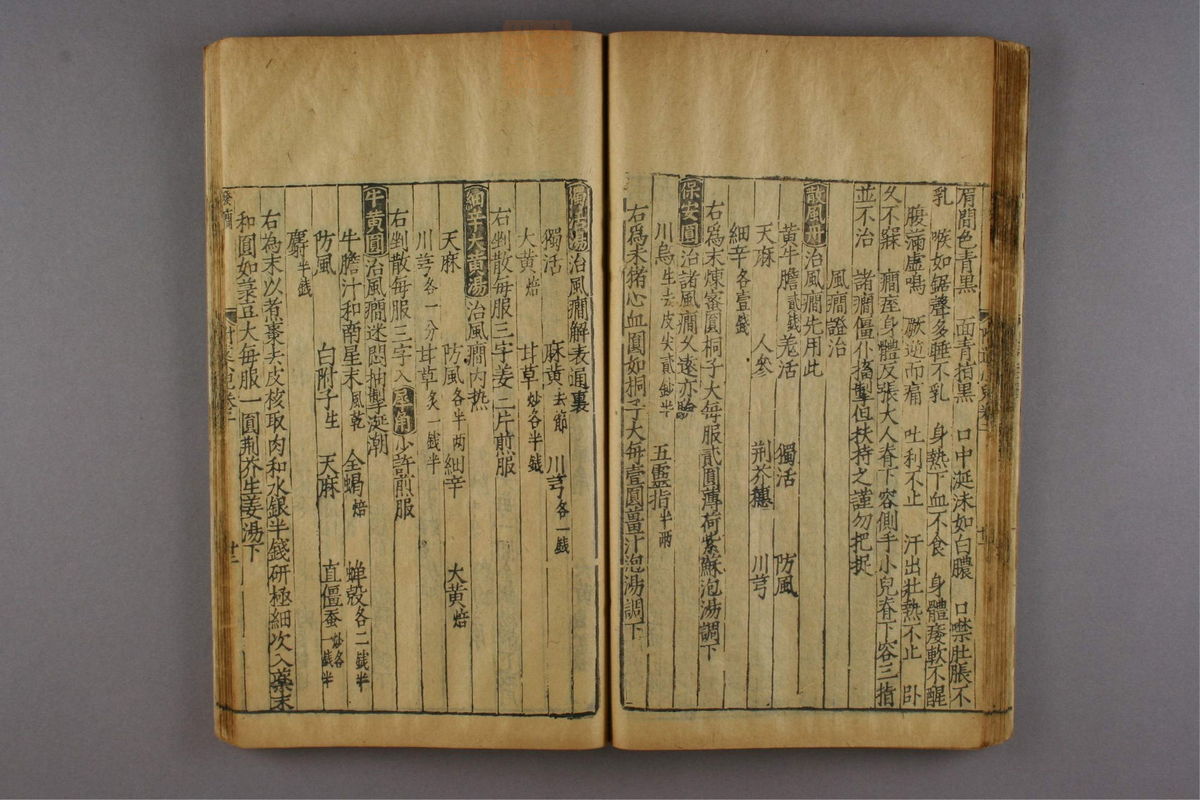 眉間色青黑　面青指黑　口中涎沫如白膿　口噤肚脹不
乳　喉如鋸聲多睡不乳　身熱下血不食　身體痿軟不醒
腹滿虛鳴　厥逆而痛　吐利不止　汗出壯熱不止　卧
久不寐　癎痓身體反張大人脊下容側手小兒脊下容三指
並不治　諸癎僵仆搐掣但扶持之謹勿把捉
風癎證治
散風丹　治風癎先用此
黃牛膽貳錢　羗活　獨活　防風
天麻　人參　荆芥穗　川芎
細辛各壹錢
右爲末煉蜜圓桐子大每服貳圓薄荷紫蘇泡湯調下
保安圓　治諸風癎久遠亦驗
川烏生去皮尖貳錢半　五靈指半兩
右爲末猪心血圓如桐子大每壹圓薑汁泡湯調下
獨活湯　治風癎解表通裏
獨活　麻黃去節　川芎各一錢
大黃焙　甘草炒各半錢
右剉散每服三字姜二片煎服
細辛大黃湯　治風癎內熱
天麻　防風各半兩　細辛　大黃焙
川芎各一分　甘草炙一錢半
右剉散每服三字入犀角少許煎服
牛黃圓　治風癎迷悶抽掣涎潮
牛膽汁和南星末風乾　全蝎焙　蟬殼各二錢半
防風　白附子生　天麻　直僵蚕炒各一錢半
麝半錢
右為末以煮棗去皮核取肉和水銀半錢研極細次入藥末
和圓如菉豆大每服一圓荆芥生姜湯下
發癎
廿二